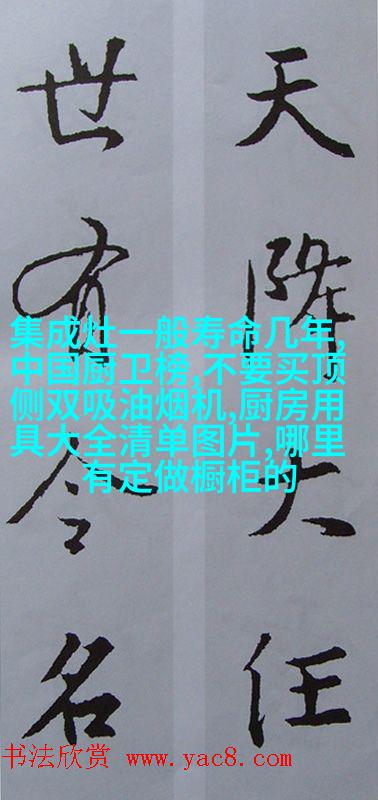 天降大任
世有令名
集成灶一般寿命几年,
中国厨卫榜,不要买顶
侧双吸油烟机,厨房用
具大全清单图片,哪里
有定做橱柜的
书法欣赏 www.yac8.com